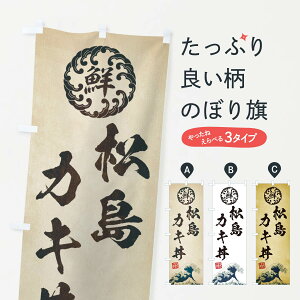 鮮
松島
カキ丼
たっぷり
良い柄
のぼり旗
やったね
えらべる
3タイプ
A
B
C
松島
カキ丼
松島
カキ丼
松島
カキ丼